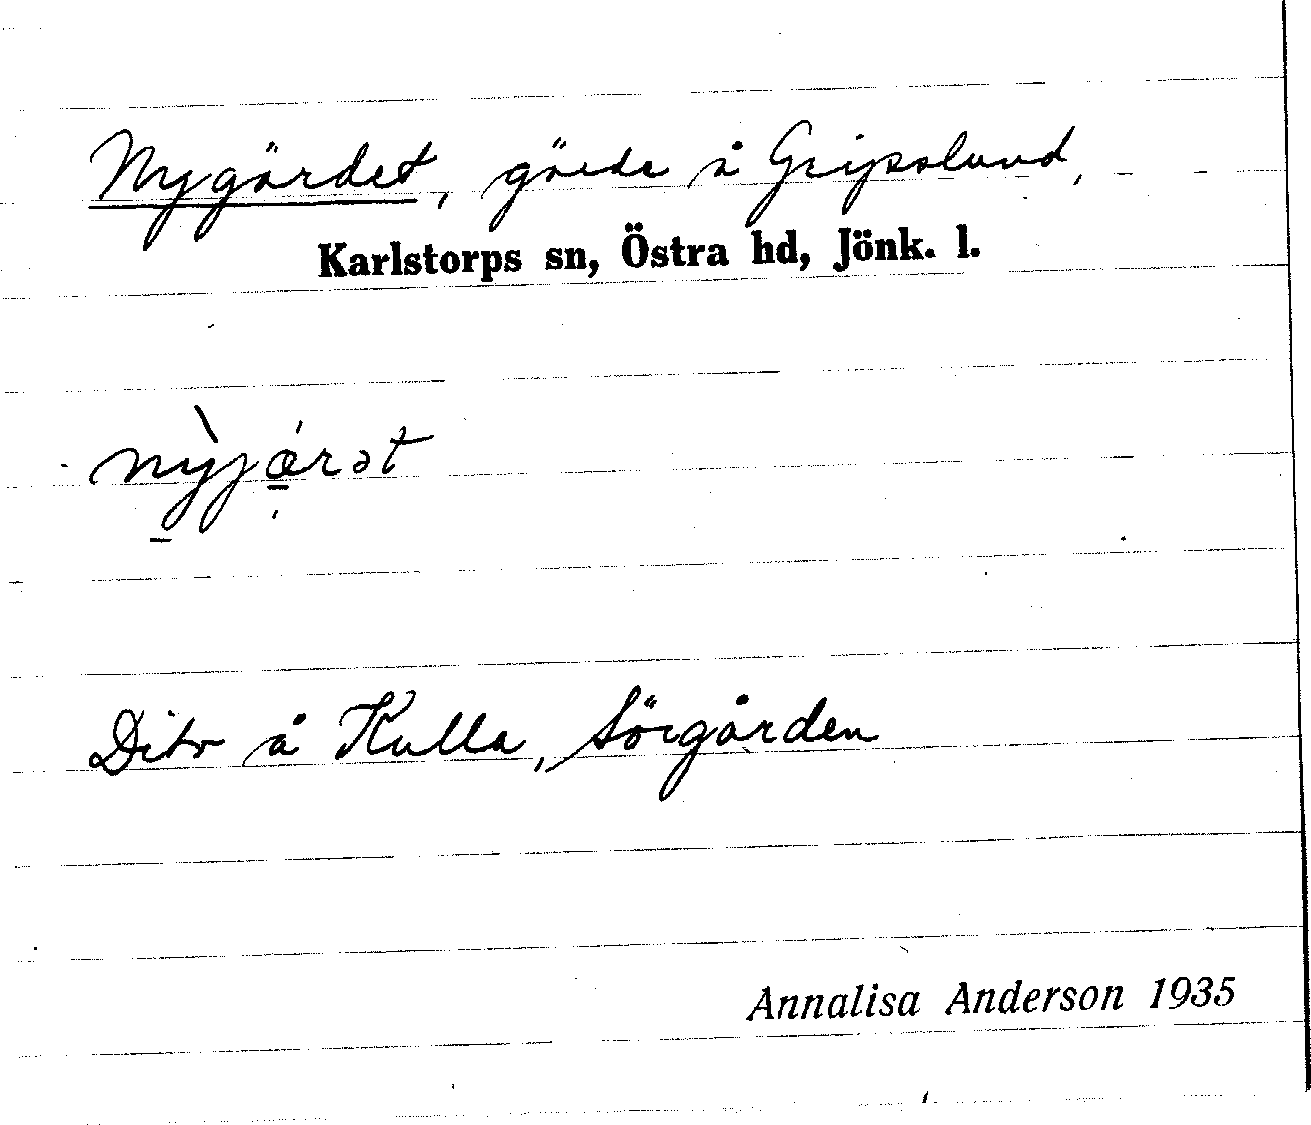 Nygärdet, gärde å Gripslund,
Karlstorps sn, Östra hd, Jönk. l.
nỳjǽrət
Dito å Kulla, Sörgården
Annalisa Anderson 1935